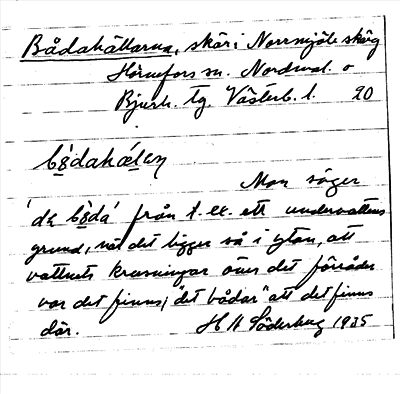 Bådahällarna, skär i Norrmjöle skärg
Hörnefors sn. Nordmal. o
Bjurh. tg. Västerb. l. 20
Man säger
från t. ex. ett undervattens
grund, när det ligger så i ytan, att
vattnets krusningar över det förråder
var det finns; "det bådar" att det finns
där. H Söderberg 1935